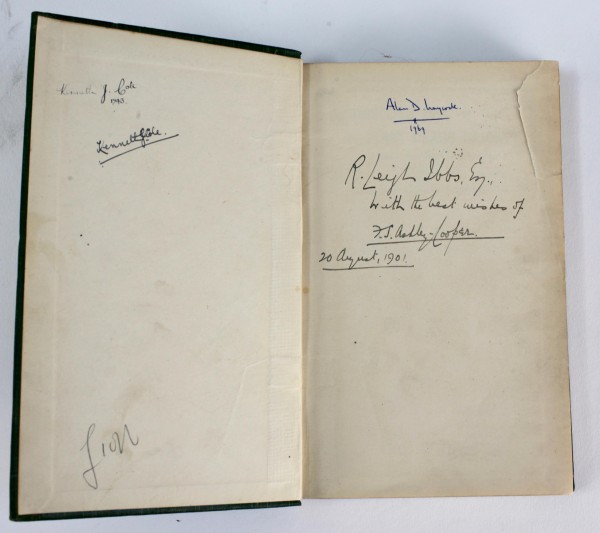 Kenneth J. Cole
1943.
Kenneth J Cole.
£10
Alan D.
1969
R. Leigh Ibbs, Esq.,
With the best wishes of
F.S. Ashley-Cooper.
20 August, 1901.